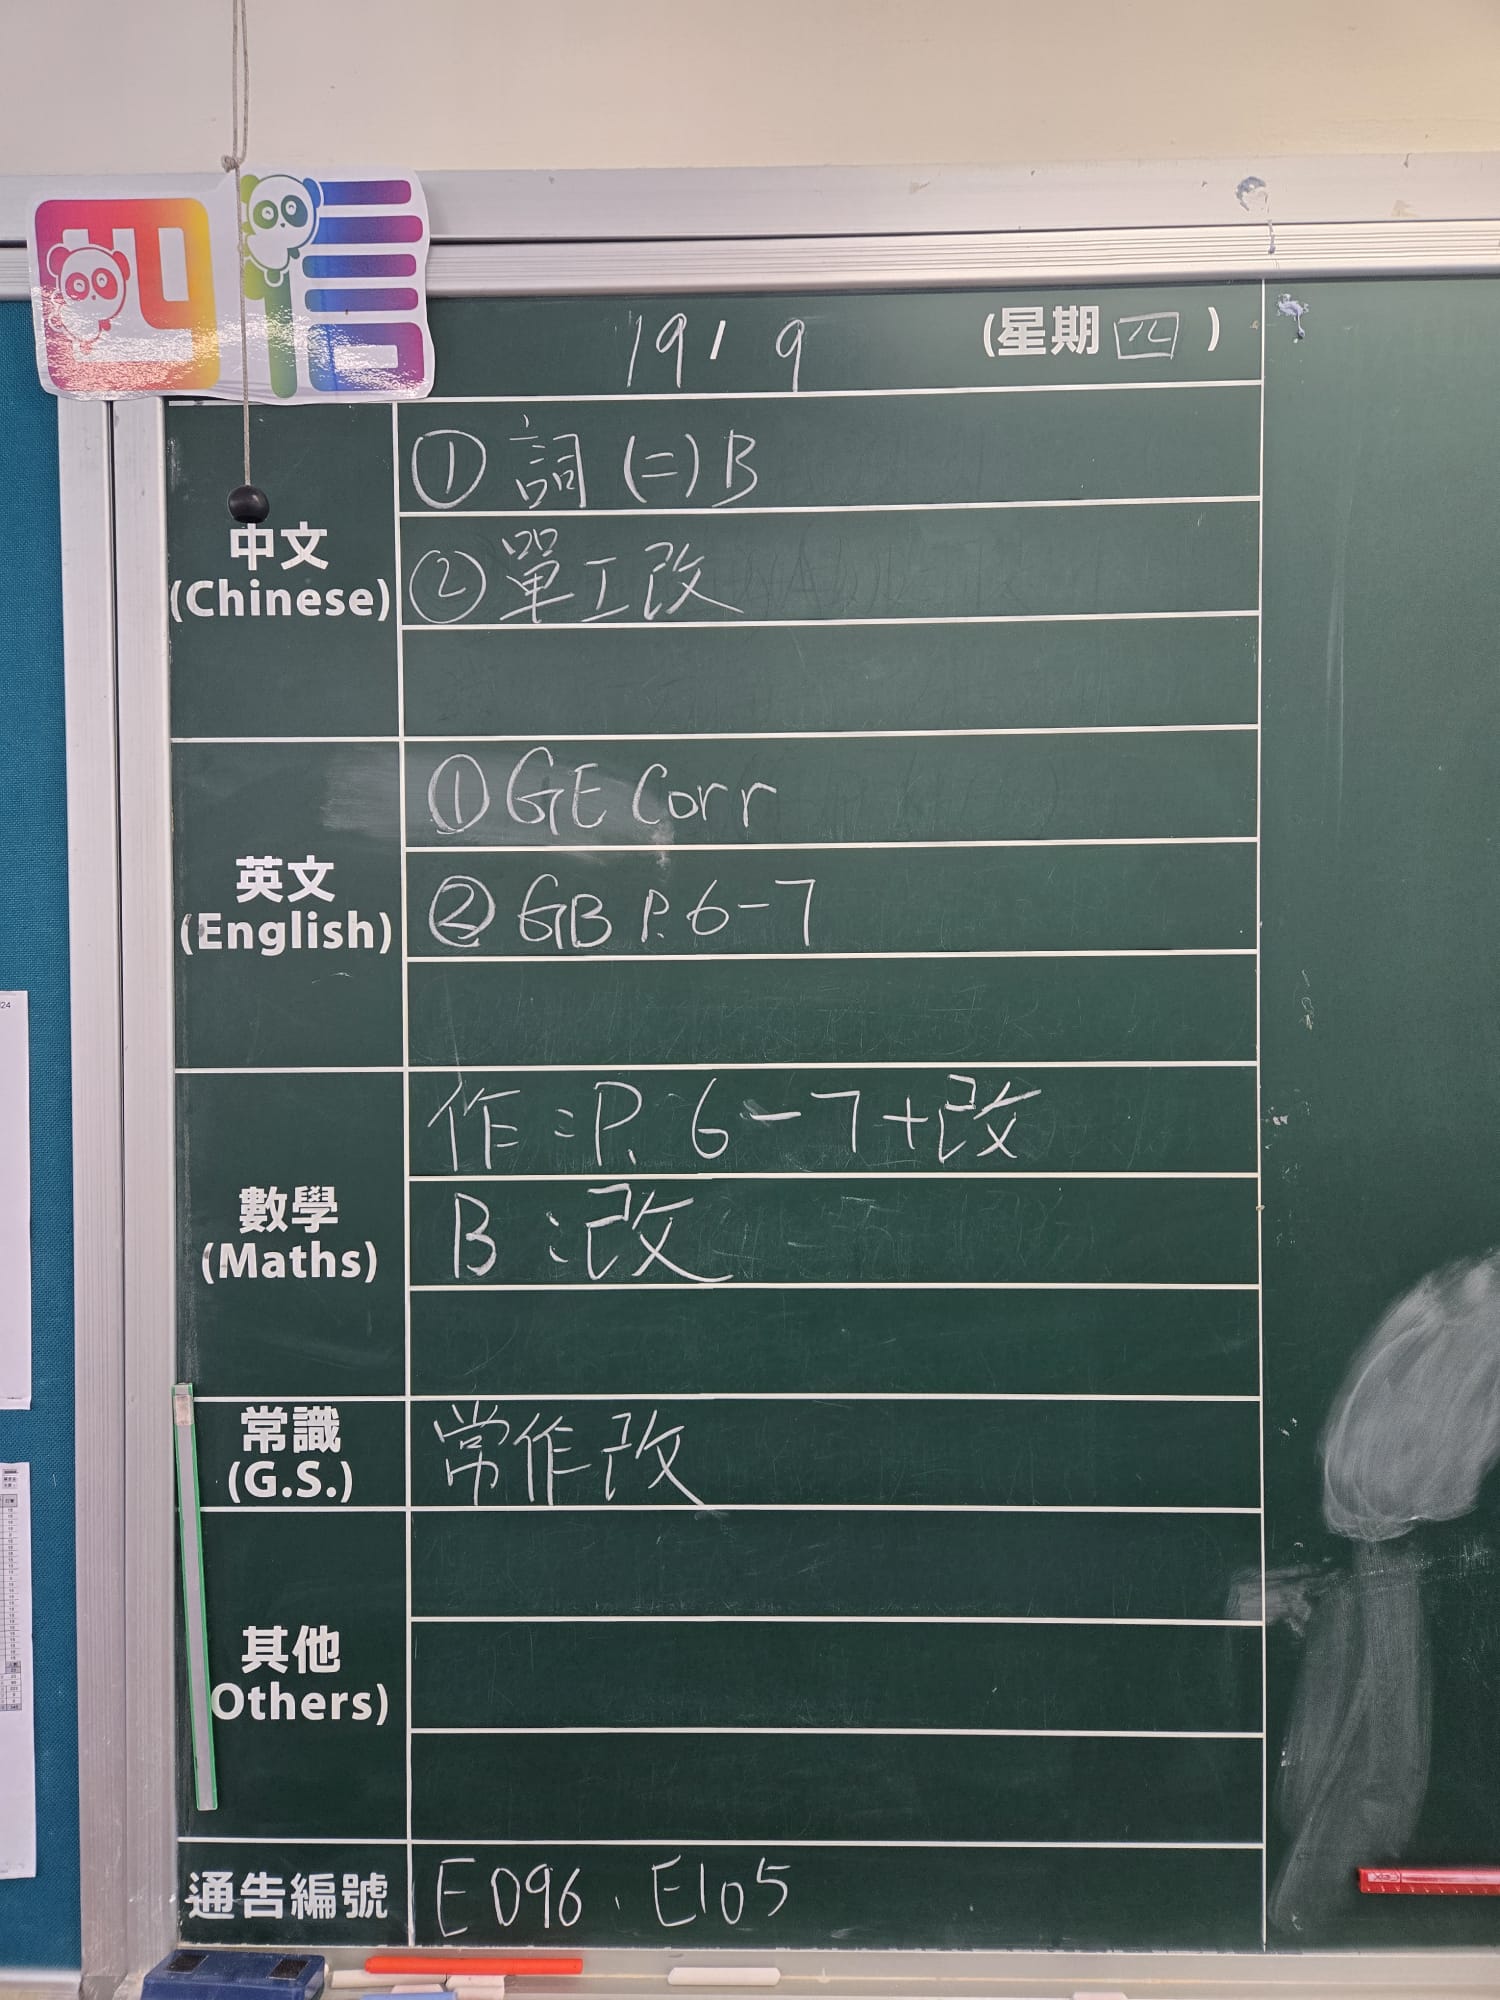 四信
19/9 (星期四)
中文
(Chinese)
① 詞(二)B
② 單工改
英文
(English)
① GE Corr
② GB P.6-7
數學
(Maths)
作:P.6-7+改
B:改
常識
(G.S.)
常作改
其他
Others)
通告編號
E096、E105